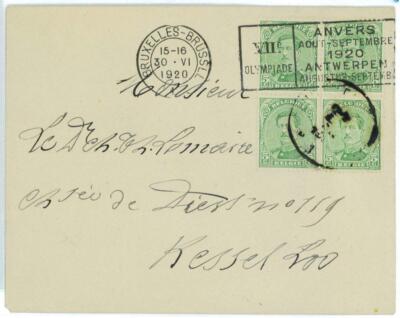 BRUXELLES-BRUSSEL
15-16
30·VI
1920
VII
OLYMPIADE
ANVERS
AOUT-SEPTEMBRE
1920
ANTWERPEN
AUGUSTUS-SEPTEMB
Monsieur
Le Dr Ch. Lemaire
chsée de Diest no 119
Kessel Loo